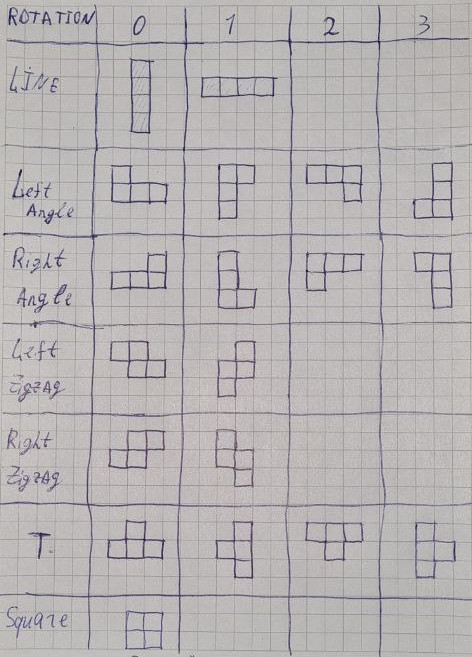 ROTATION 0 1 2 3
LINE
Left
Angle
Right
Angle
Left
ZigzAg
Right
ZigzAg
T.
Square